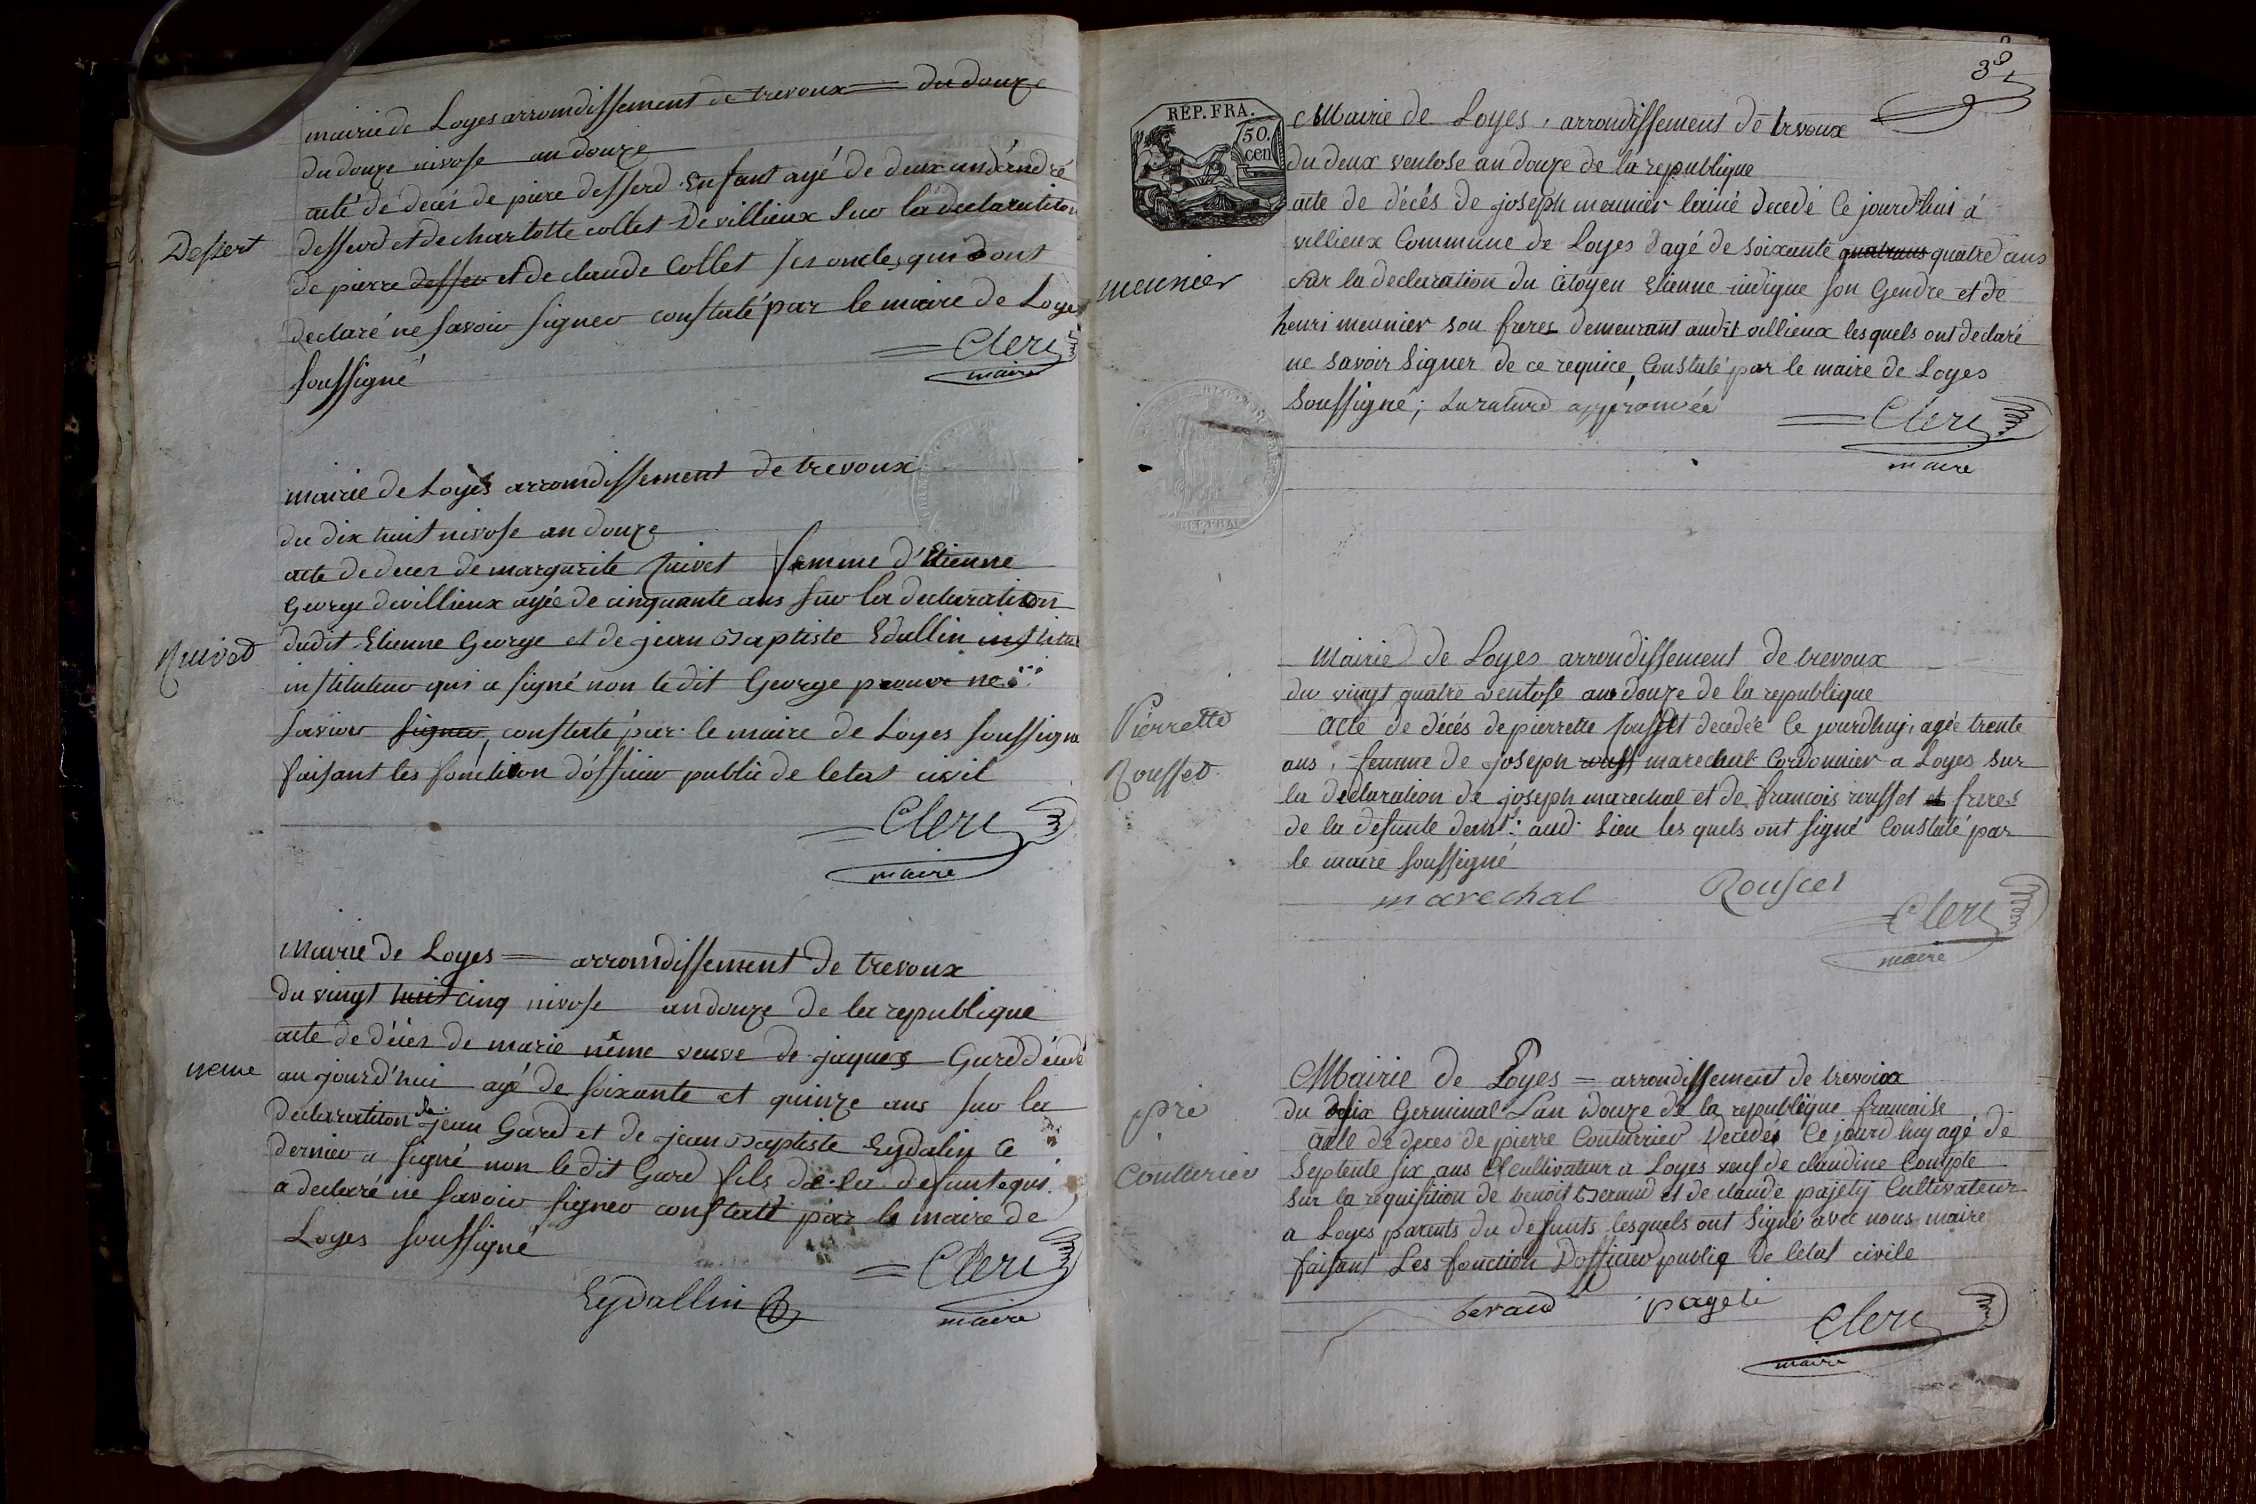 mairie de Loyes arrondissement de trevoux = du douze
du douze nivose an douze
acte de décés de piere desserd enfant agé de deux ans dandré
Dessert
desserd et de charlotte collet de villieux sur la declaratiton
de pierre desser et de claude Collet ses oncles qui ont
declaré ne savoir signer constaté par le maire de Loyes
soussigné
Clerc
maire
mairie de Loyes arrondissement de trevoux
du dix huit nivose an douze
acte de deces de margurite quivet femme d'Etienne
George de villieux agée de cinquante ans sur la declaration
dudit Etienne George et de jean Baptiste Edallin institut
Quivet
instituteur qui a signé non le dit George pr ne
savoir signer, constaté par le maire de Loyes soussigné
faisant les fonction dofficier public de letat civil
Clerc
maire
Mairie de Loyes = arrondissement de trevoux
du vingt huit cinq nivose an douze de la republique
acte de décés de marie nême veuve de jaques Gard décedé
neme
aujourd'hui agé de soixante et quinze ans sur la
declaratiton de jean Gard et de jean Baptiste Eydalin ce
dernier a signé non le dit Gard fils de la defunte qui
a declaré ne savoir signer constaté par le maire de
Loyes soussigné
Eydallin
Clerc
maire
38
REP. FRA.
50.
cen
Mairie de Loyes, arrondissement de trevoux
du deux ventose an douze de la republique
acte de décés de joseph meunier lainé decedé ce jourdhui a
villieux Commune de Loyes dagé de soixante quatre ans
meunier
sur la declaration du citoyen Etienne indigue son Gendre et de
henri meunier son freres demeurant audit villieux les quels ont declaré
ne savoir signer de ce requice, Constaté par le maire de Loyes
soussigné; la rature approuvée
Clerc
maire
REP.FRA
Mairie de Loyes arrondissement de trevoux
du vingt quatre ventose an douze de la republique
Pierrette
Acte de décés de pierrette rousset decedée ce jourdhuj agée trente
Rousset
ans, femme de joseph rouss marechal Cordonnier a Loyes sur
la declaration de joseph marechal et de francois rousset et freres
de la defunte demt. aud. lieu les quels ont signé Constaté par
le maire soussigné
marechal
Rouscet
Clerc
maire
Mairie de Loyes = arrondissement de trevoux
du dix Germinal Lan douze de la republique francaise
pre
acte de deces de pierre Couturrier decedés ce jourd huy agé de
Couturier
septente six ans cultivateur a Loyes veuf de claudine Compte
sur la requisition de benoit Beraud et de claude pajety Cultivateur
a Loyes parents du defunts lesquels ont signé avec nous maire
faisant Les fonction Dofficier publiq de letat civile
beraud
pageti
Clerc
maire